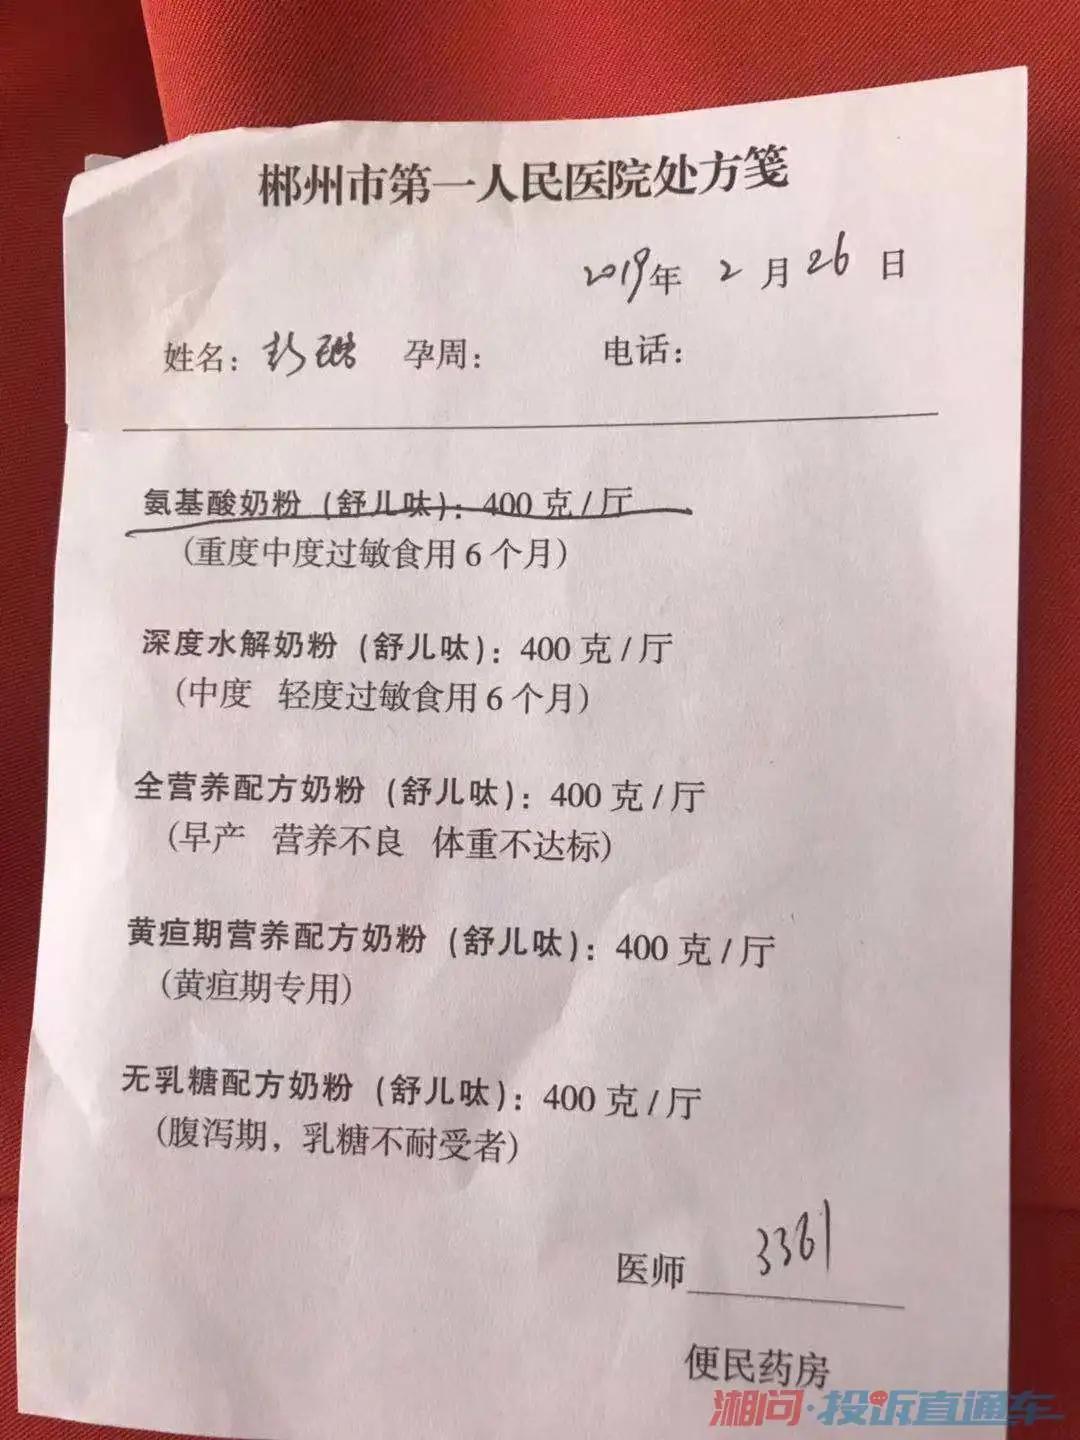 郴州市第一人民医院处方笺
2019年 2 月 26 日
姓名： 孕周： 电话：
氨基酸奶粉（舒儿呔）：400 克 / 厅
（重度中度过敏食用 6 个月）
深度水解奶粉（舒儿呔）：400 克 / 厅
（中度 轻度过敏食用 6 个月）
全营养配方奶粉（舒儿呔）：400 克 / 厅
（早产 营养不良 体重不达标）
黄疸期营养配方奶粉（舒儿呔）：400 克 / 厅
（黄疸期专用）
无乳糖配方奶粉（舒儿呔）：400 克 / 厅
（腹泻期，乳糖不耐受者）
医师 3361
便民药房
湘问·投诉直通车